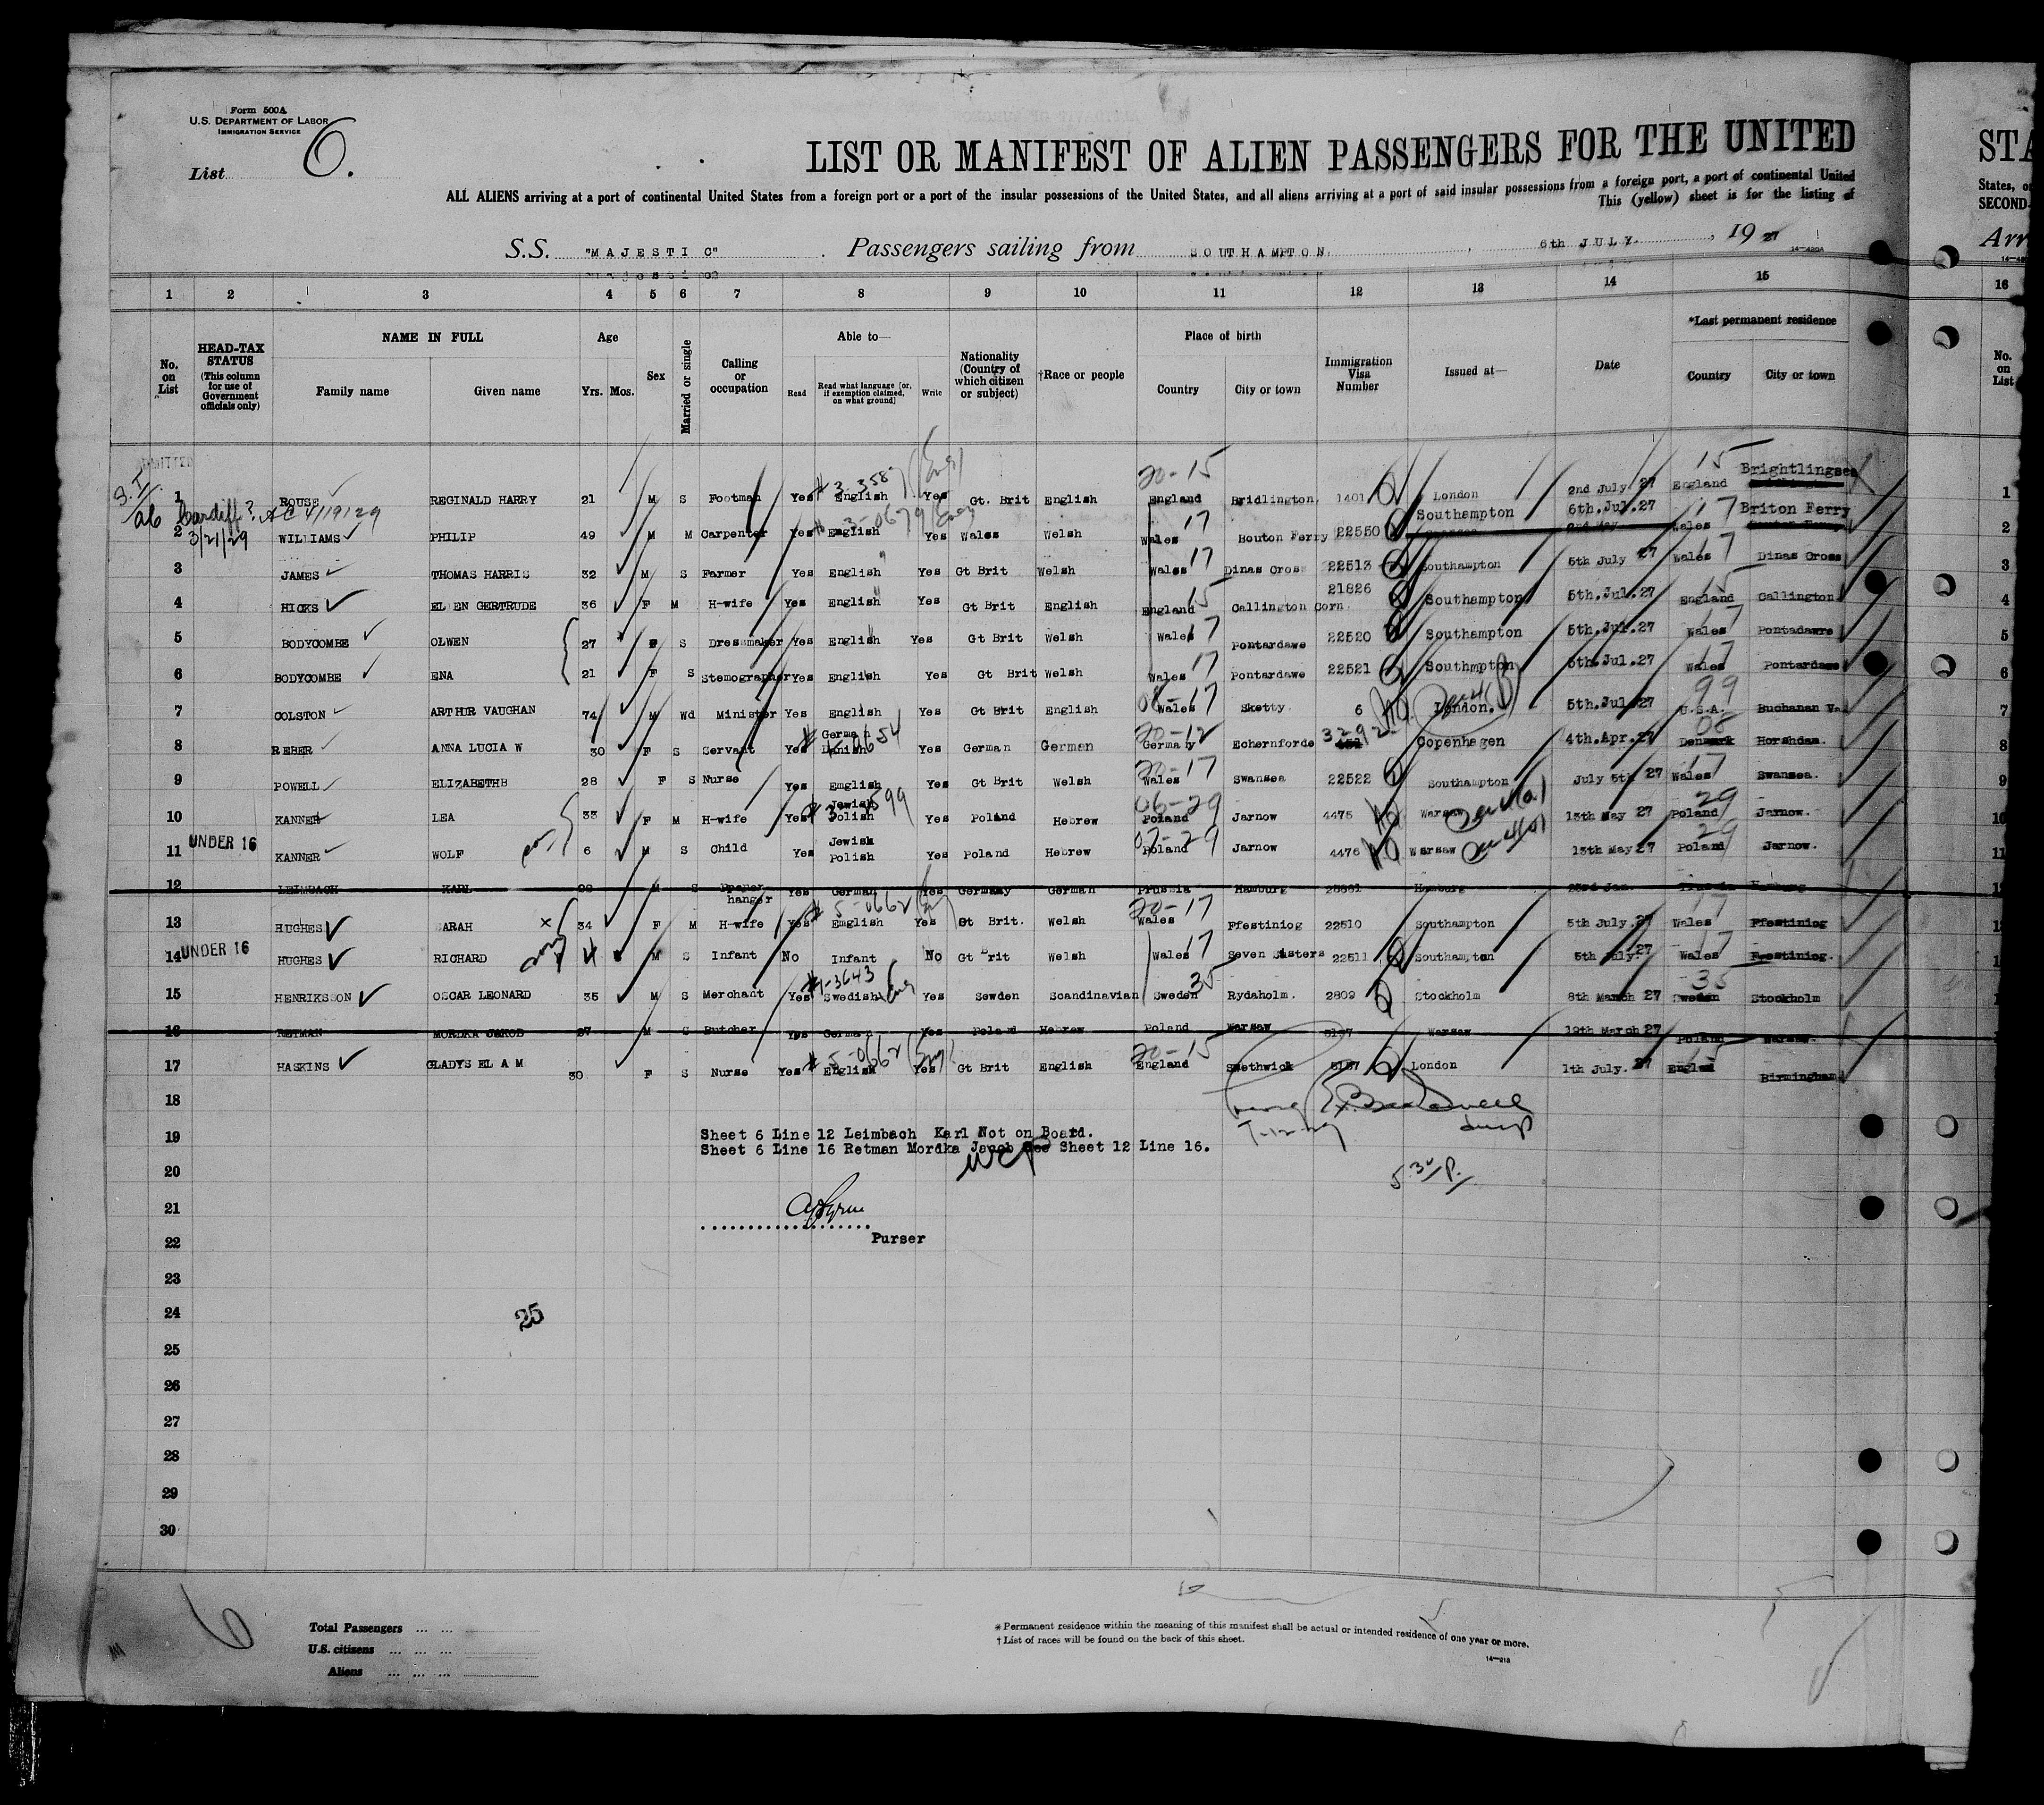 Form 500A
U.S. DEPARTMENT OF LABOR
IMMIGRATION SERVICE
List 6.
LIST OR MANIFEST OF ALIEN PASSENGERS FOR THE UNITED
STA
ALL ALIENS arriving at a port of continental United States from a foreign port or a port of the insular possessions of the United States, and all aliens arriving at a port of said insular possessions from a foreign port, a port of continental United
States, o
This (yellow) sheet is for the listing of
SECOND-
S.S. "MAJESTIC" Passengers sailing from SOUTHAMPTON, 6th JULY. , 19 27
Arr
14-420A
1 2 3 4 5 6 7 8 9 10 11 12 13 14 15 16
No. on List
HEAD-TAX STATUS (This column for use of Government officials only)
NAME IN FULL
Family name
Given name
Age
Yrs. Mos.
Sex
Married or single
Calling or occupation
Able to—
Read
Read what language [or, if exemption claimed, on what ground]
Write
Nationality (Country of which citizen or subject)
†Race or people
Place of birth
Country
City or town
Immigration Visa Number
Issued at—
Date
*Last permanent residence
Country
City or town
No. on List
1 ROUSE REGINALD HARRY 21 M S Footman Yes English Yes Gt. Brit English 20-15 England Bridlington, 1401 London 2nd July 27 England 15 Brightlingsea 1
Cardiff? 4/19/29
3/21/29
2 WILLIAMS PHILIP 49 M M Carpenter Yes English Yes Wales Welsh Wales 17 Bouton Ferry 22550 Southampton 6th.Jul.27 Wales 17 Briton Ferry 2
3 JAMES THOMAS HARRIS 32 M S Farmer Yes English Yes Gt Brit Welsh Wales 17 Dinas Cross 22513 Southampton 5th July 27 Wales 17 Dinas Cross 3
4 HICKS ELLEN GERTRUDE 36 F M H-wife Yes English Yes Gt Brit English England 15 Callington Corn. 21826 Southampton 5th.Jul.27 England 15 Callington 4
5 BODYCOMBE OLWEN 27 F S Dressmaker Yes English Yes Gt Brit Welsh Wales 17 Pontardawe 22520 Southampton 5th.Jul.27 Wales 17 Pontadawre 5
6 BODYCOMBE ENA 21 F S Stemographer Yes English Yes Gt Brit Welsh Wales 17 Pontardawe 22521 Southmpton 5th.Jul.27 Wales 17 Pontardawe 6
7 COLSTON ARTHUR VAUGHAN 74 M Wd Minister Yes English Yes Gt Brit English Wales 17 Sketty 6 London. 5th.Jul.27 U.S.A. 99 Buchanan Va. 7
8 REBER ANNA LUCIA W 30 F S Servant Yes German Danish Yes German German 20-12 Germany Echernforde 3292 Copenhagen 4th.Apr.27 Denmark 08 Horshdam. 8
9 POWELL ELIZABETHB 28 F S Nurse Yes Emglish Yes Gt Brit Welsh 20-17 Wales Swansea 22522 Southampton July 5th 27 Wales 17 Swansea. 9
10 KANNER LEA 33 F M H-wife Yes Jewish Polish Yes Poland Hebrew 06-29 Poland Jarnow 4475 Warsaw 13th May 27 Poland 29 Jarnow. 10
11 UNDER 16 KANNER WOLF 6 M S Child Yes Jewish Polish Yes Poland Hebrew 07-29 Poland Jarnow 4476 Warsaw 13th May 27 Poland 29 Jarnow. 11
12 LEIMBACH KARL 28 M S hanger Yes German Yes Germany German Prussia Hamburg Hamburg 23rd Jan. Prussia Hamburg
13 HUGHES SARAH 34 F M H-wife Yes Emglish Yes Gt Brit. Welsh 20-17 Wales Ffestiniog 22510 Southampton 5th July.27 Wales 17 Ffestiniog
14 UNDER 16 HUGHES RICHARD 4 M S Infant No Infant No Gt Brit Welsh Wales 17 Seven Sisters 22511 Southampton 5th July.27 Wales 17 Ffestiniog.
15 HENRIKSSON OSCAR LEONARD 35 M S Merchant Yes Swedish Yes Sewden Scandinavian Sweden 35 Rydaholm. 2809 Stockholm 8th March 27 Sweden 35 Stockholm
16 RETMAN MORDKA JAKOB 27 M S Butcher Yes German Yes Poland Hebrew Poland Warsaw Warsaw 19th March 27 Poland Warsaw.
17 HASKINS GLADYS EL A M 30 F S Nurse Yes English Yes Gt Brit English 20-15 England Smethwick 5157 London 1th July. 27 England 15 Birmingham
18
19 Sheet 6 Line 12 Leimbach Karl Not on Board.
Sheet 6 Line 16 Retman Mordka Jacob See Sheet 12 Line 16.
20
5 30 P.
21
22 Purser
23
24 25
25
26
27
28
29
30
6
Total Passengers
U.S. citizens
Aliens
*Permanent residence within the meaning of this manifest shall be actual or intended residence of one year or more.
†List of races will be found on the back of this sheet.
14-213